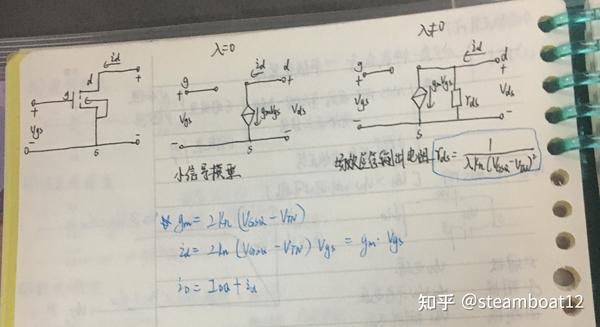 λ=0
λ≠0
id
d
+
g
+
Vgs
-
-
s
g
+
Vgs
-
id
d
+
gmVgs
Vds
-
s
g
+
Vgs
-
id
d
+
gmVgs
rds
Vds
-
s
小信号模型
输出电阻 rds = 1 / λKn(VGSQ-VTN)²
gm = 2Kn (VGSQ - VTN)
id = 2Kn (VGSQ - VTN) Vgs = gm · Vgs
iD = IDQ + id
知乎 @steamboat12